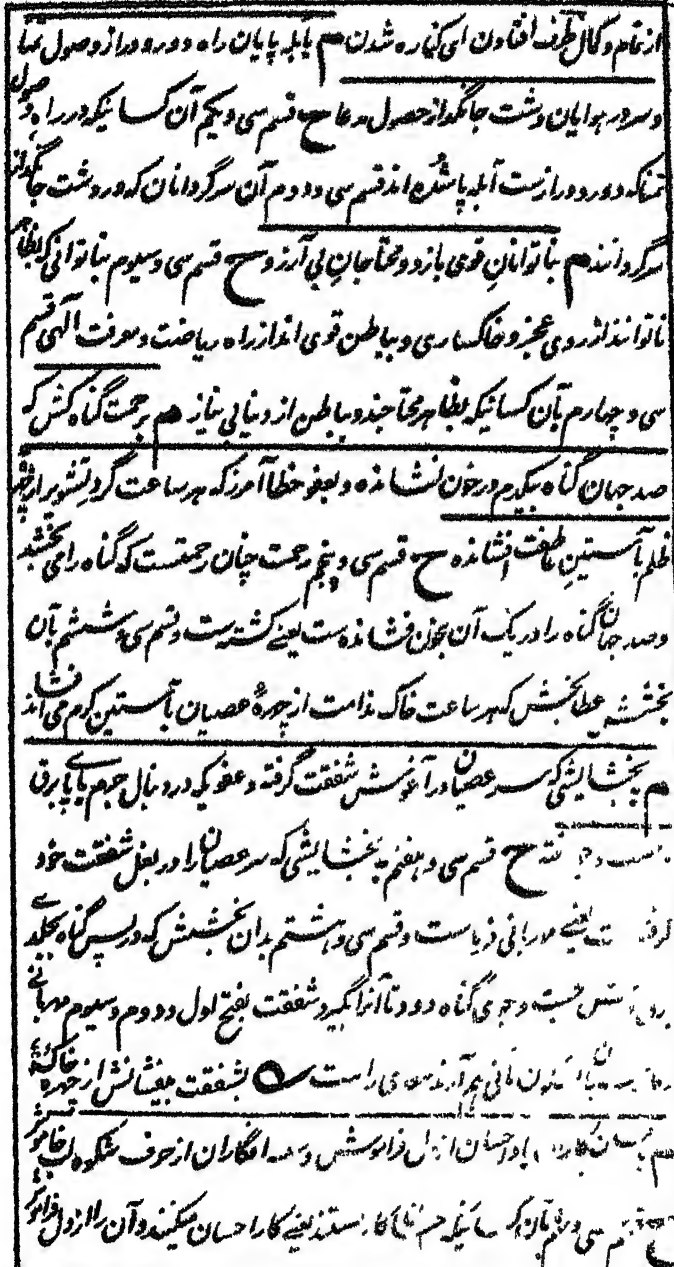 از تمام و کمال طرف افتادن ای کناره شدن م بآبله پایان راه دور و دراز وصول تمنا
و سر در هوایان دشت جانگداز حصول مدعا ح قسم سی و یکم آن کسانیکه در راه وصول
تمنا که دور و درازست آبله پا شده اند قسم سی و دوم آن سرگردانان که در دشت جانگداز
سرگردانند م بناتوانان قوی بازو و محتاجان بی آرزو ح قسم سی و سیوم بناتوانی که بظاهر
ناتوانند از روی عجز و خاکساری و بباطن قوی اند از راه ریاضت و معرفت الهی قسم
سی و چهارم بآن کسانیکه بظاهر محتاجند و بباطن از دنیا بی نیاز م برحمت گناه کش که
صد جهان گناه بیکدم در خون نشانده و بعفو خطا آمرز که هر ساعت گرد تشویر از چهره
ظلم بآستین عاطفت افشانده ح قسم سی و پنجم رحمت چنان رحمتست که گناه را می بخشد
و صد جهان گناه را در یک آن بخون فشانده ست یعنے کشته ست و قسم سی و ششم بآن
بخشش عطا بخش که هر ساعت خاک ندامت از چهرهٔ عصیان بآستین کرم می افشاند
م ببخشایشی که سر عصیان در آغوش شفقت گرفته و عفوی که در دنبال جرم بپای برق
ح قسم سی و هفتم به بخشایشی که سر عصیان را در بغل شفقت خود
گرفته ست یعنے مهربانی فرماست و قسم سی و هشتم بدان بخشش که در پس گناه بجلدے
جست و جوی گناه دود تا آنرا گیرد شفقت بفتح اول و دوم و سیوم مهربانے
بشفقت بیفشانش از چهره خاک
احسان از دل فراموش و افگاران از حرف شکوه لب خاموش
قسم سی و نهم بآن که یعنے کار احسان میکنند و آن را از دل فراموش